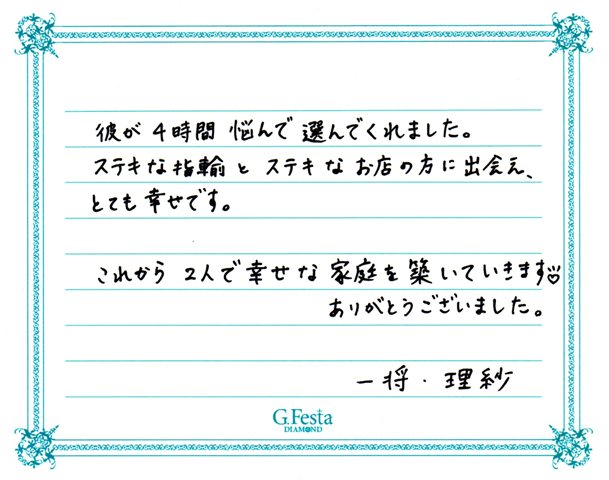 彼が4時間 悩んで 選んでくれました。
ステキな指輪と ステキなお店の方に出会え、
とても幸せです。
これから 2人で幸せな 家庭を築いていきます♡
ありがとうございました。
一将・理紗
G.Festa
DIAMOND